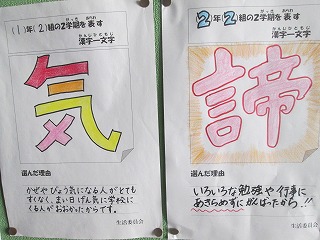 (1)年(2)組の2学期を表す
漢字一文字
気
選んだ理由
かぜやびょう気になる人がとても
すくなく、まい日げん気に学校に
くる人がおおかったからです。
生活委員会
(2)年(2)組の2学期を表す
漢字一文字
諦
選んだ理由
いろいろな勉強や行事に
あきらめずにがんばったから!!
生活委員会